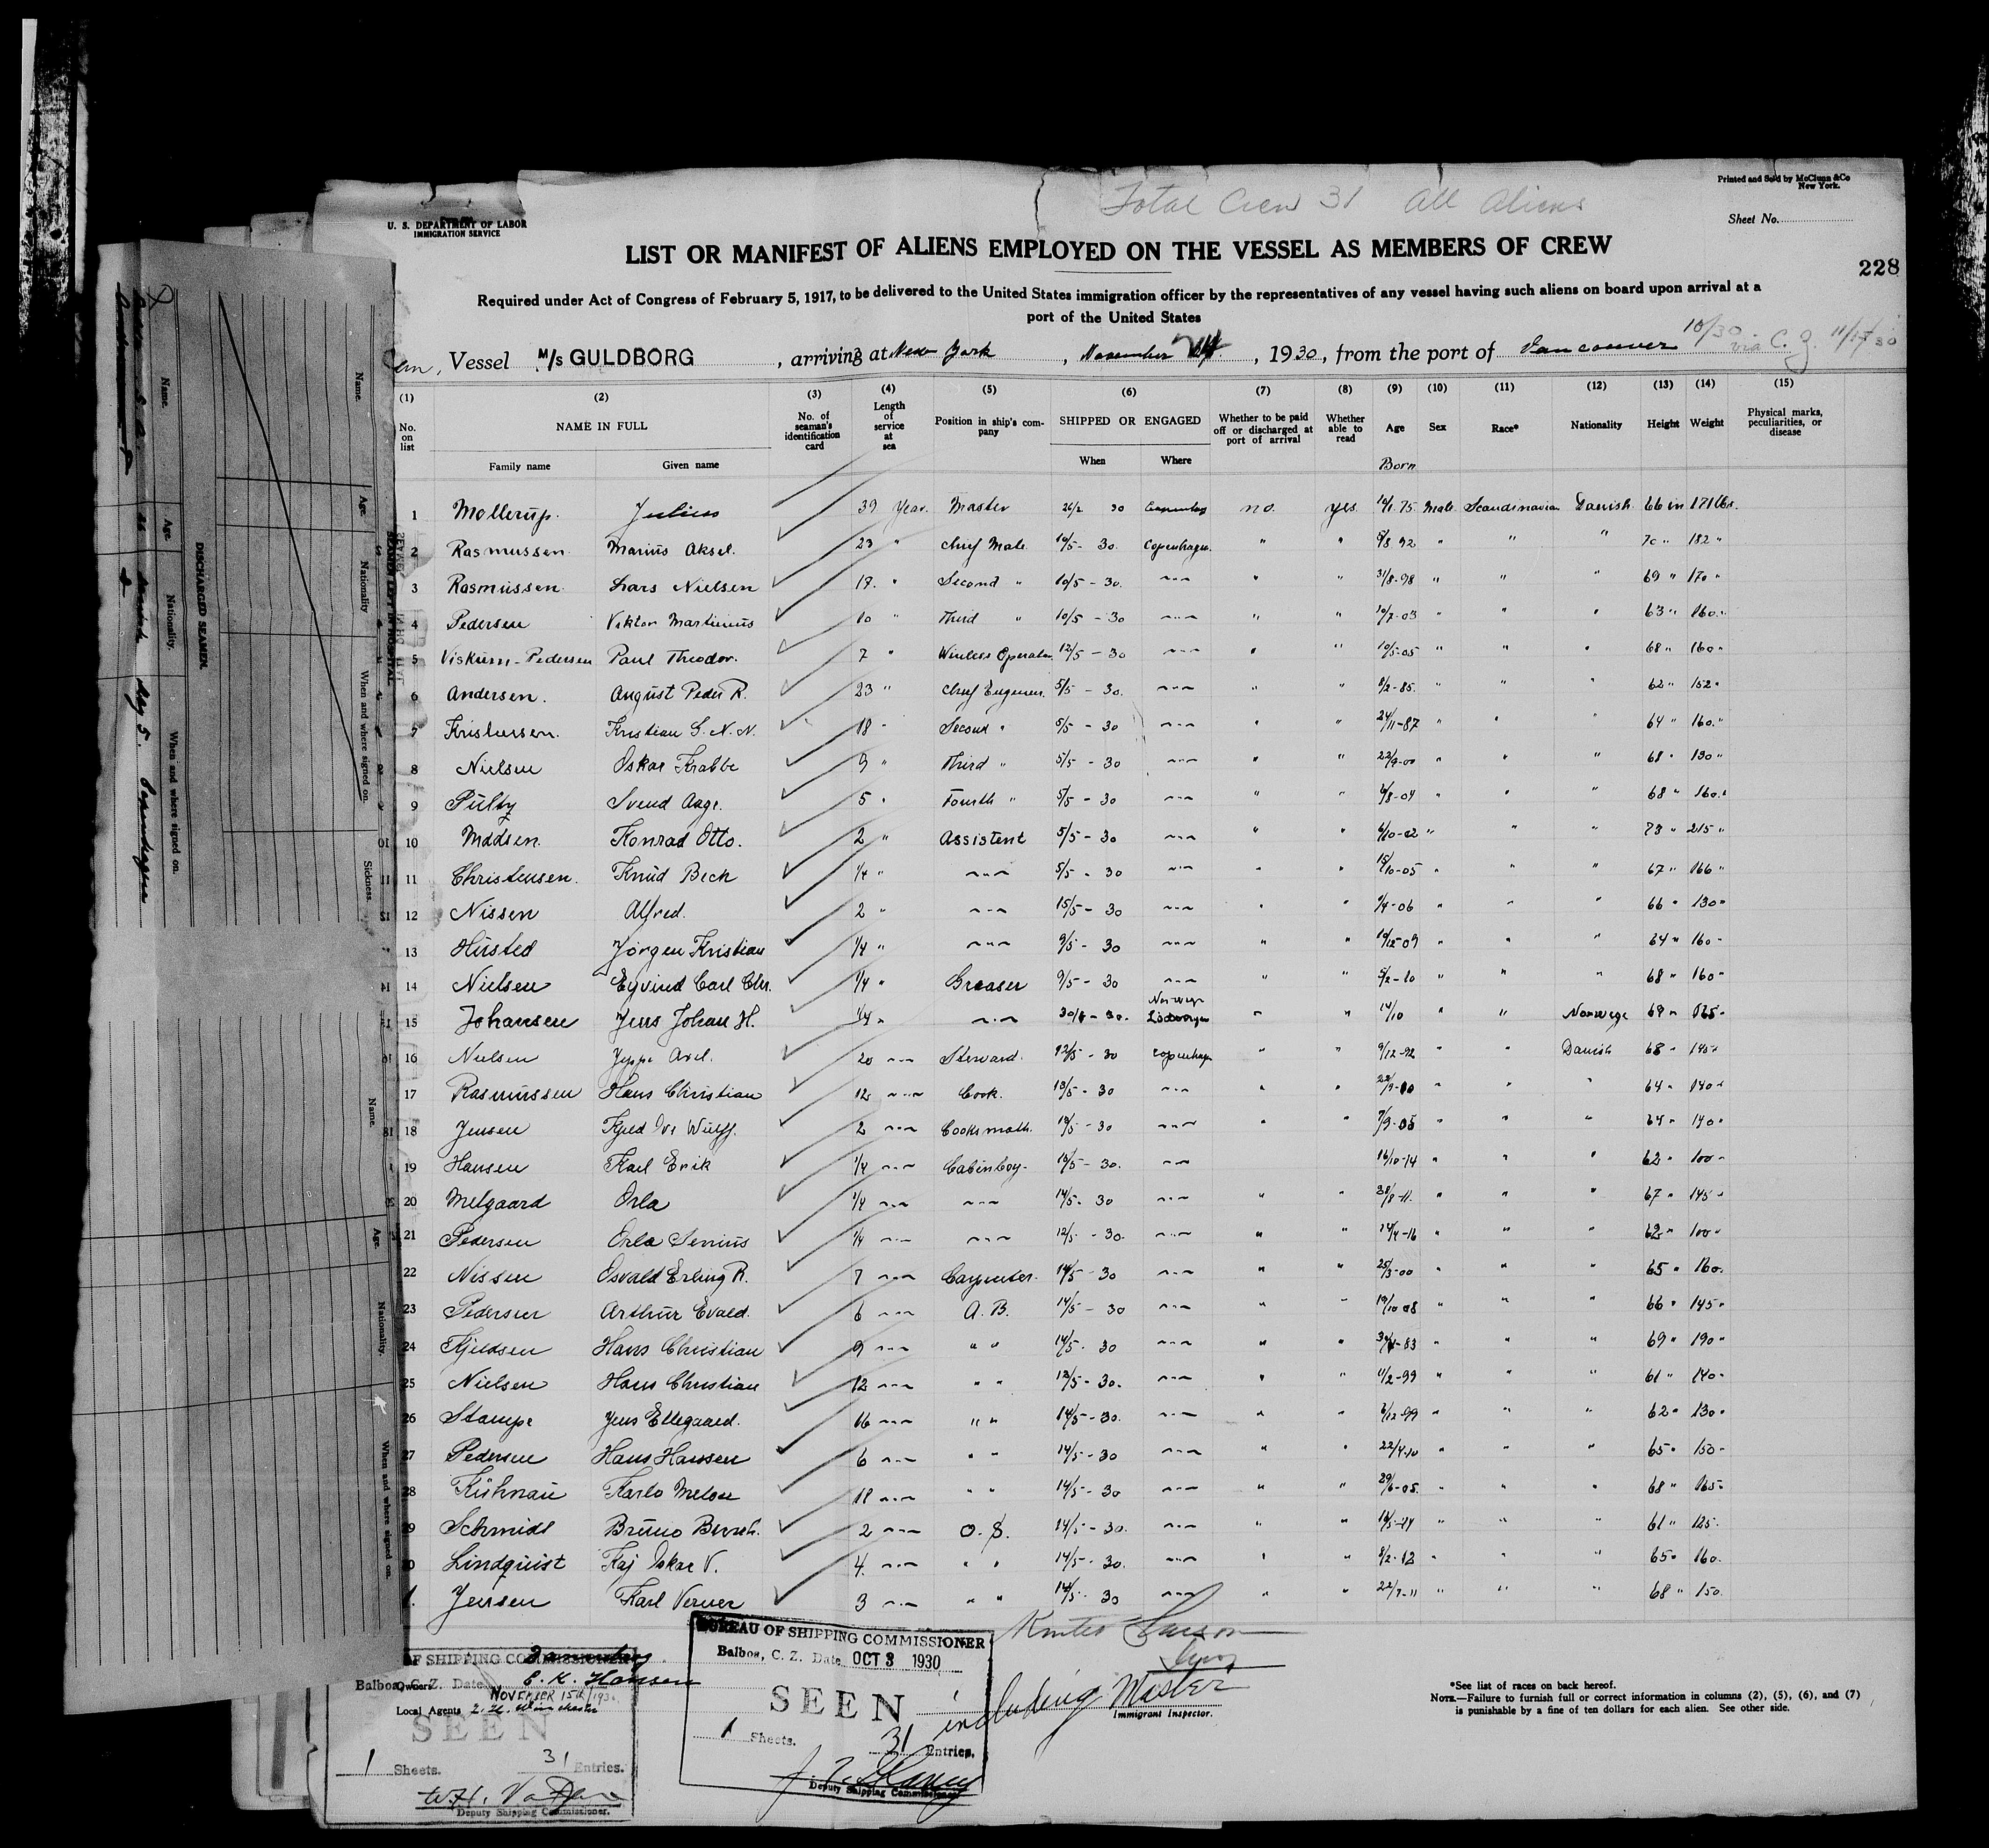 Total Crew 31 All Aliens
Printed and Sold by McClunn & Co
New York.
U. S. DEPARTMENT OF LABOR
IMMIGRATION SERVICE
Sheet No.
LIST OR MANIFEST OF ALIENS EMPLOYED ON THE VESSEL AS MEMBERS OF CREW
228
Required under Act of Congress of February 5, 1917, to be delivered to the United States immigration officer by the representatives of any vessel having such aliens on board upon arrival at a
port of the United States
Vessel M/s GULDBORG, arriving at New York, November, 1930, from the port of Vancouver 10/30 via C. Z.
(1) (2) (3) (4) (5) (6) (7) (8) (9) (10) (11) (12) (13) (14) (15)
No. on list NAME IN FULL No. of seaman's identification card Length of service at sea Position in ship's company SHIPPED OR ENGAGED Whether to be paid off or discharged at port of arrival Whether able to read Age Sex Race* Nationality Height Weight Physical marks, peculiarities, or disease
Family name Given name When Where Born
1 Mollerup. Julius 39 Year. Master 26/2 30 no. yes. 75 Male Scandinavian Danish 66 in 171 lbs.
2 Rasmussen. Marius Aksel. 23 " Chief Mate 10/5 - 30. Copenhagen. " " 92 " " " 70 " 182 "
3 Rasmussen Lars Nielsen 17. " Second " 10/5 - 30. -"- " " 31/8-98 " " " 69 " 170 "
4 Pedersen Viktor Martinius 10 " Third " 10/5 - 30 -"- " " 10/7-03 " " " 63 " 160. "
5 Viskum-Pedersen Paul Theodor. 7 " Wireless Operator 12/5 - 30 -"- " " 10/5-05 " " " 68 " 160 "
6 Andersen. August Peder R. 23 " Chief Engineer. 5/5 - 30. -"- " " 8/2-85. " " " 62 " 152 "
7 Kristensen. Kristian G. N. N. 18 " Second " 5/5 - 30 -"- " " 24/11-87 " " " 64 " 160. "
8 Nielsen Oskar Krabbe 9 " Third " 5/5 - 30 -"- " " 22/9-00 " " " 68 " 130 "
9 Pultz Svend Aage. 5 " Fourth " 5/5 - 30 -"- " " 8-04 " " " 68 " 160. "
10 Madsen. Konrad Otto. 2 " Assistent 5/5 - 30 -"- " " 6/10-02 " " " 73 " 215 "
11 Christensen. Knud Bech 1/4 " -"- 5/5 - 30 -"- " " 15/10-05 " " " 67 " 166 "
12 Nissen Alfred. 2 " -"- 15/5 - 30 -"- " " 4-06 " " " 66 " 130 "
13 Husted Jörgen Kristian 1/4 " -"- 9/5 - 30 -"- " " 12-09 " " " 64 " 160 "
14 Nielsen Eyvind Carl Chr. 1/4 " Greaser 9/5 - 30 -"- " " 5/2-10 " " " 68 " 160 "
15 Johansen Jens Johan H. 1/4 " -"- - 30. Norwege " " 14/10 " " Norwege 69 " 165 "
16 Nielsen Jeppe Axel. 20 -"- Steward. 12/5 - 30 Copenhag " " 9/12-92 " " Danish 68 " 145 "
17 Rasmussen Hans Christian 12 -"- Cook. 13/5 - 30 -"- " " " " " 64 " 140 "
18 Jensen Kjeld Ove Wulff. 2 -"- Cooks math. 30 -"- " " 7/9-05 " " " 64 " 140 "
19 Hansen Karl Erik 1/4 -"- Cabinboy - 30. -"- 16/10-14 " " " 62 " 100 "
20 Melgaard Orla 1/4 -"- -"- 14/5 - 30 -"- " " 28/8-11. " " " 67 " 145 "
21 Pedersen Orla Senius 1/4 -"- -"- 12/5 - 30. -"- " " 4-16 " " " 62 " 100 "
22 Nissen Osvald Erling R. 7 -"- Carpenter. 14/5 - 30 -"- " " 25/3-00 " " " 65 " 160.
23 Pedersen Arthur Evald. 6 -"- A. B. 14/5 - 30 -"- " " 19/10 08 " " " 66 " 145 "
24 Kjeldsen Hans Christian 9 -"- " " 14/5 - 30 -"- " " 83 " " " 69 " 190 "
25 Nielsen Hans Christian 12 -"- " " 12/5 - 30. -"- " " 11/2-99 " " " 61 " 140 "
26 Stampe Jens Ellegaard. 16 -"- " " 14/5 - 30. -"- " " 12-99 " " " 62 " 130 "
27 Pedersen Hans Hansen 6 -"- " " 14/5 - 30 -"- " " 22/4-10 " " " 65 " 150 "
28 Kühnau Karlo 18 -"- " " 14/5 - 30 -"- " " 29/6-05. " " " 68 " 165 "
29 Schmidt Bruno 2 -"- O. S. 14/5 - 30. -"- " " " " " 61 " 125.
30 Lindquist Kaj Oskar V. 4. -"- " " 14/5 - 30. -"- " " 8/2-12 " " " 65 " 160.
31. Jensen Karl Verner 3 -"- " " 14/5 - 30 -"- " " 22/7-11 " " " 68 " 150.
OF SHIPPING COMMISSIONER
Balboa, C. Z. Date
Owners E. K. Hansen
NOVEMBER 15th 1930
Local Agents
SEEN
1 Sheets. 31 Entries.
Deputy Shipping Commissioner.
BUREAU OF SHIPPING COMMISSIONER
Balboa, C. Z. Date OCT 3 1930
SEEN
1 Sheets. 31 Entries.
including Master
Deputy Shipping Commissioner
Immigrant Inspector.
*See list of races on back hereof.
NOTE.—Failure to furnish full or correct information in columns (2), (5), (6), and (7)
is punishable by a fine of ten dollars for each alien. See other side.
DISCHARGED SEAMEN.
Name. Age. Nationality. When and where signed on.
May 5. Copenhagen
SEAMEN LEFT IN HOSPITAL
Name. Age. Nationality When and where signed on. Sickness.
Name. Age. Nationality. When and where signed on.